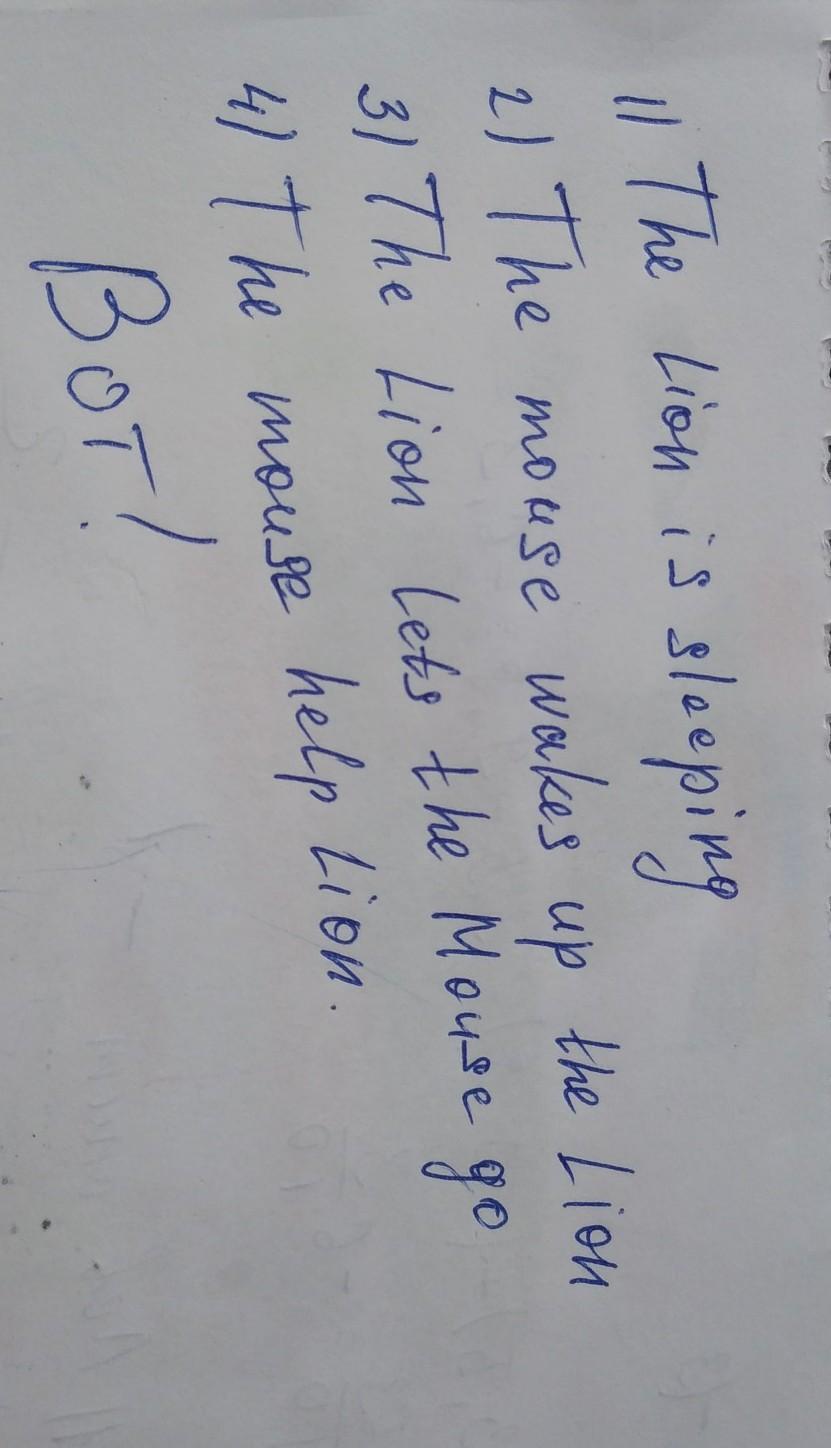 1) The Lion is sleeping
2) The mouse wakes up the Lion
3) The Lion lets the Mouse go
4) The mouse help Lion.
Вот!